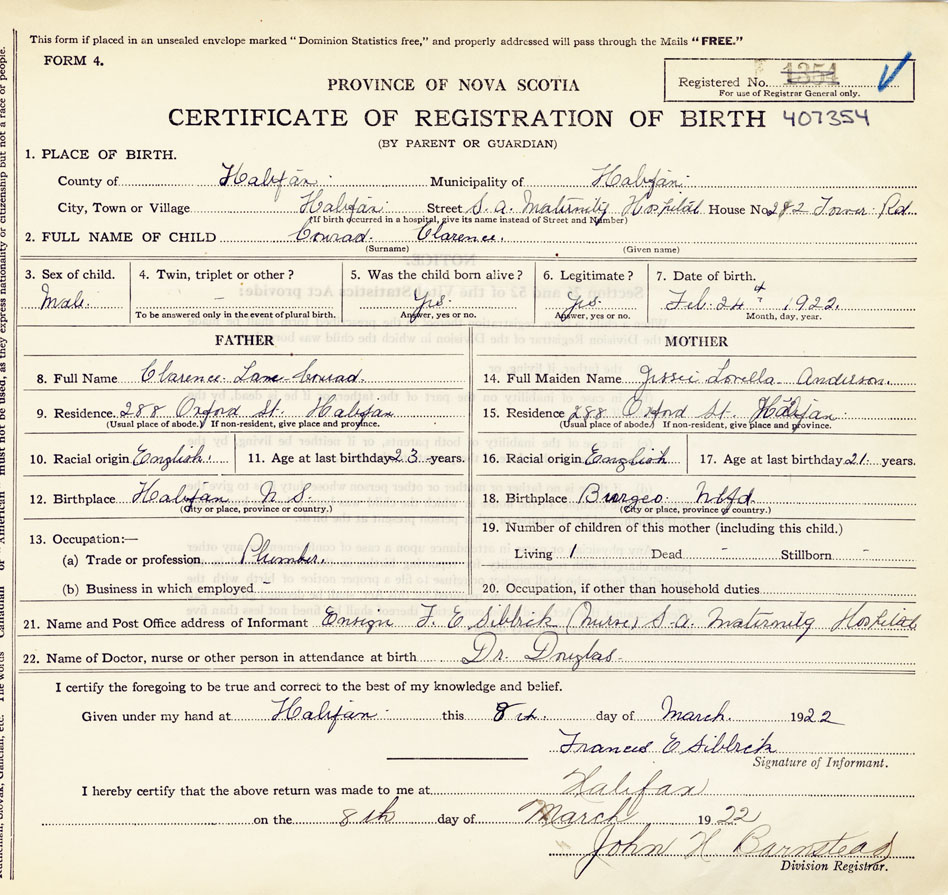 This form if placed in an unsealed envelope marked "Dominion Statistics free," and properly addressed will pass through the Mails "FREE."
FORM 4.
Registered No. 1354
For use of Registrar General only.
PROVINCE OF NOVA SCOTIA
CERTIFICATE OF REGISTRATION OF BIRTH 407354
(BY PARENT OR GUARDIAN)
1. PLACE OF BIRTH.
County of Halifax Municipality of Halifax
City, Town or Village Halifax Street S. A. Maternity Hospital House No. 282 Tower Rd.
(If birth occurred in a hospital, give its name instead of Street and Number)
2. FULL NAME OF CHILD Conrad Clarence.
(Surname) (Given name)
3. Sex of child. 4. Twin, triplet or other? 5. Was the child born alive? 6. Legitimate? 7. Date of birth.
Male. – Yes. Yes. Feb. 24th 1922.
To be answered only in the event of plural birth. Answer, yes or no. Answer, yes or no. Month, day, year.
FATHER MOTHER
8. Full Name Clarence Lane Conrad. 14. Full Maiden Name Jessie Lovella Anderson.
9. Residence. 288 Oxford St. Halifax 15. Residence 288 Oxford St. Halifax
(Usual place of abode.) If non-resident, give place and province. (Usual place of abode.) If non-resident, give place and province.
10. Racial origin English. 11. Age at last birthday 23 years. 16. Racial origin English 17. Age at last birthday 21 years.
12. Birthplace Halifax N. S. 18. Birthplace Burgeo Nfld.
(City or place, province or country.) (City or place, province or country.)
13. Occupation:— 19. Number of children of this mother (including this child.)
(a) Trade or profession Plumber. Living 1 Dead - Stillborn -
(b) Business in which employed 20. Occupation, if other than household duties
21. Name and Post Office address of Informant Ensign F. E Sibbrik (Nurse) S. A. Maternity Hospital
22. Name of Doctor, nurse or other person in attendance at birth Dr. Douglas
I certify the foregoing to be true and correct to the best of my knowledge and belief.
Given under my hand at Halifax this 8th day of March. 1922
Frances E Sibbrik
Signature of Informant.
I hereby certify that the above return was made to me at Halifax
on the 8th day of March 1922
John H Barnstead
Division Registrar.